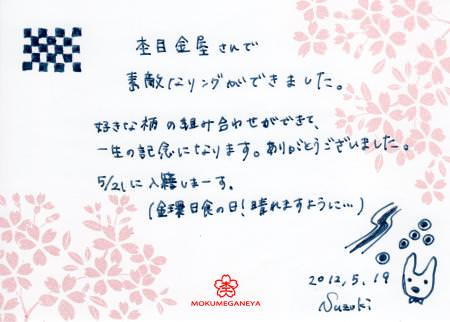 杢目金屋さんで
素敵なリングができました。
好きな柄の組み合わせができて、
一生の記念になります。ありがとうございました。
5/21に入籍しまーす。
(金環日食の日!晴れますように…)
2012.5.19
Suzuki
MOKUMEGANEYA